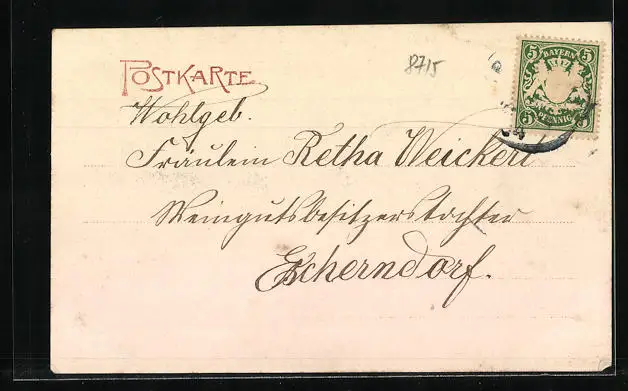 POSTKARTE
8715
5 BAYERN 5
5 PFENNIG 5
Wohlgeb.
Fräulein Retha Weickert
Weingutsbesitzerstochter
Escherndorf.